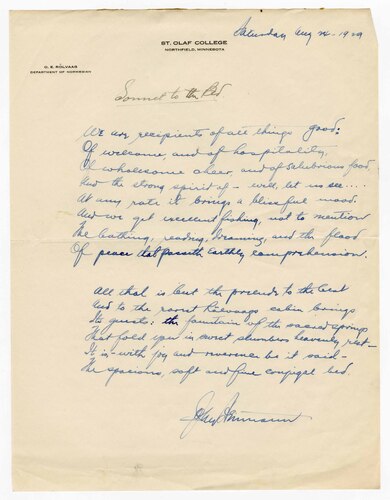 Saturday Aug 24 - 1929
ST. OLAF COLLEGE
NORTHFIELD, MINNESOTA
O. E. ROLVAAG
DEPARTMENT OF NORWEGIAN
Sonnet to the Bed
We are recipients of all things good:
Of welcome, and of hospitality,
Of wholesome cheer, and of salubrious food,
And the strong spirit of - well, let us see....
At any rate it brings a blissful mood.
And we get excellent fishing, not to mention
The bathing, reading, dreaming, and the flood
Of peace that passeth earthly comprehension.
All that is but the prelude to the best
And to the rarest Rolvaags cabin brings
Its guests: the fountain of the sacred springs
That fold you in sweet slumbers heavenly rest -
It is - with joy and reverence be it said -
The spacious, soft and fine conjugal bed.